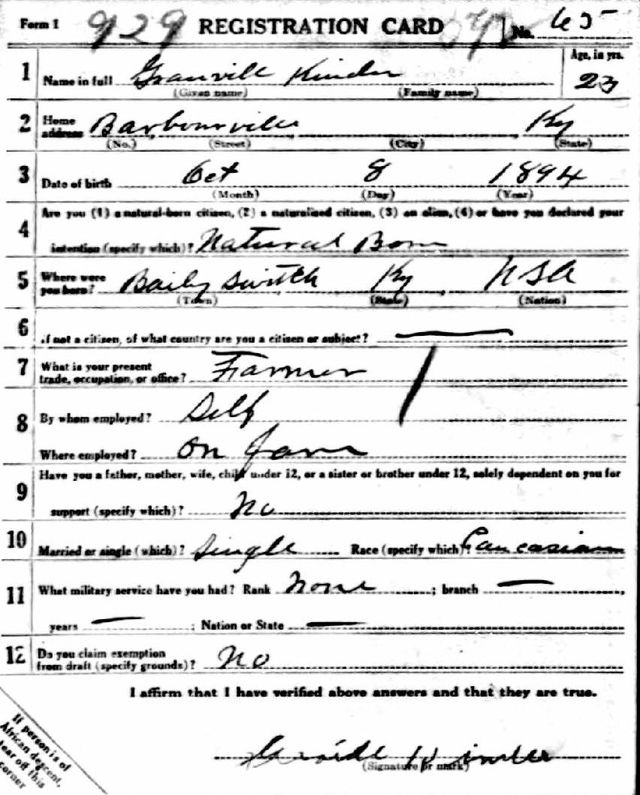 Form 1 929 REGISTRATION CARD No. 65
1 Name in full Granvill Kinder Age, in yrs. 23
(Given name) (Family name)
2 Home address Barbourville Ky
(No.) (Street) (City) (State)
3 Date of birth Oct 8 1894
(Month) (Day) (Year)
4 Are you (1) a natural-born citizen, (2) a naturalized citizen, (3) an alien, (4) or have you declared your
intention (specify which)? Natural Born
5 Where were you born? Baily Switch Ky USA
(Town) (State) (Nation)
6 If not a citizen, of what country are you a citizen or subject?
7 What is your present trade, occupation, or office? Farmer
8 By whom employed? Self
Where employed? On farm
9 Have you a father, mother, wife, child under 12, or a sister or brother under 12, solely dependent on you for
support (specify which)? No
10 Married or single (which)? Single Race (specify which)? Caucasian
11 What military service have you had? Rank None ; branch
years ; Nation or State
12 Do you claim exemption from draft (specify grounds)? No
I affirm that I have verified above answers and that they are true.
If person is of
African descent,
tear off this
corner
(Signature or mark)